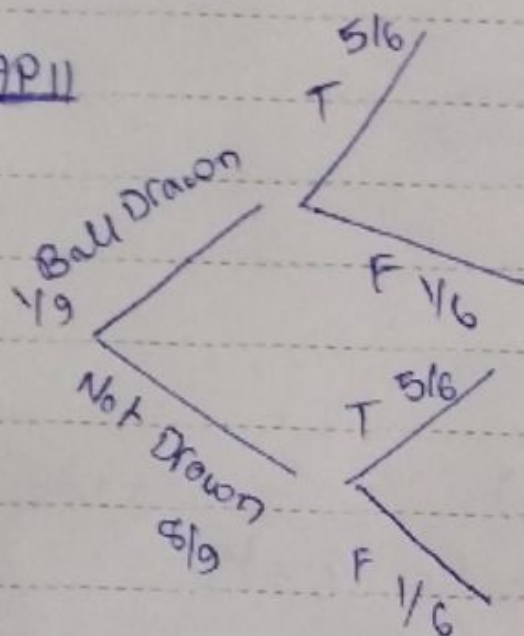 5/6
T
Ball Drawn
1/9
F 1/6
Not Drawn
8/9
T 5/6
F 1/6